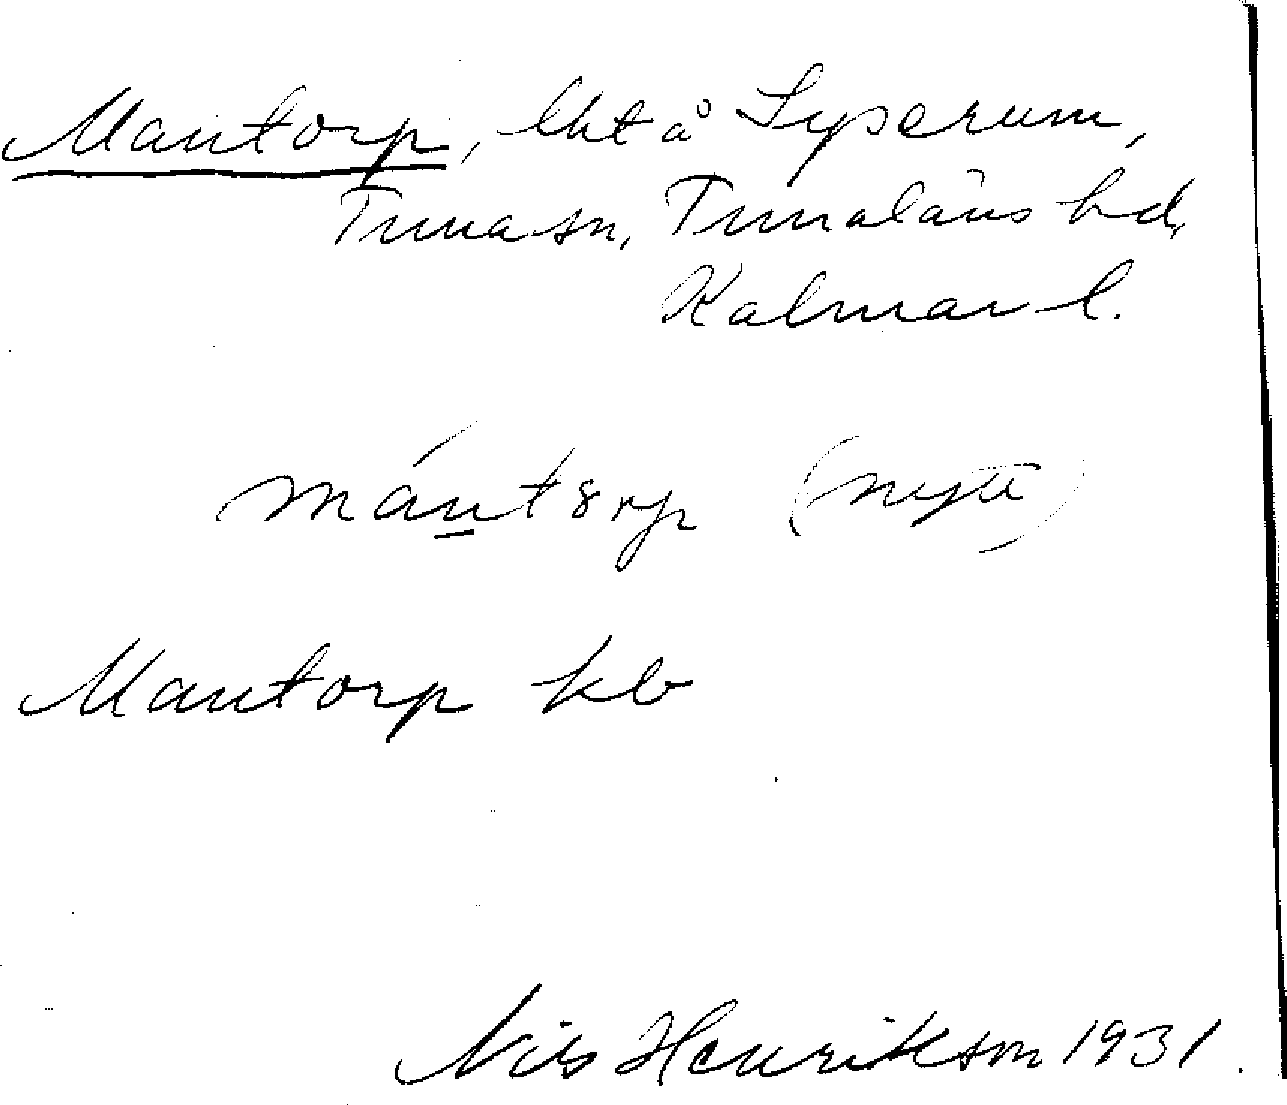 Mantorp, lht å Lyserum,
Tuna sn, Tunaläns hd,
Kalmar l.
mántorp (nytt)
Mantorp kb
Nils Henrikson 1931.